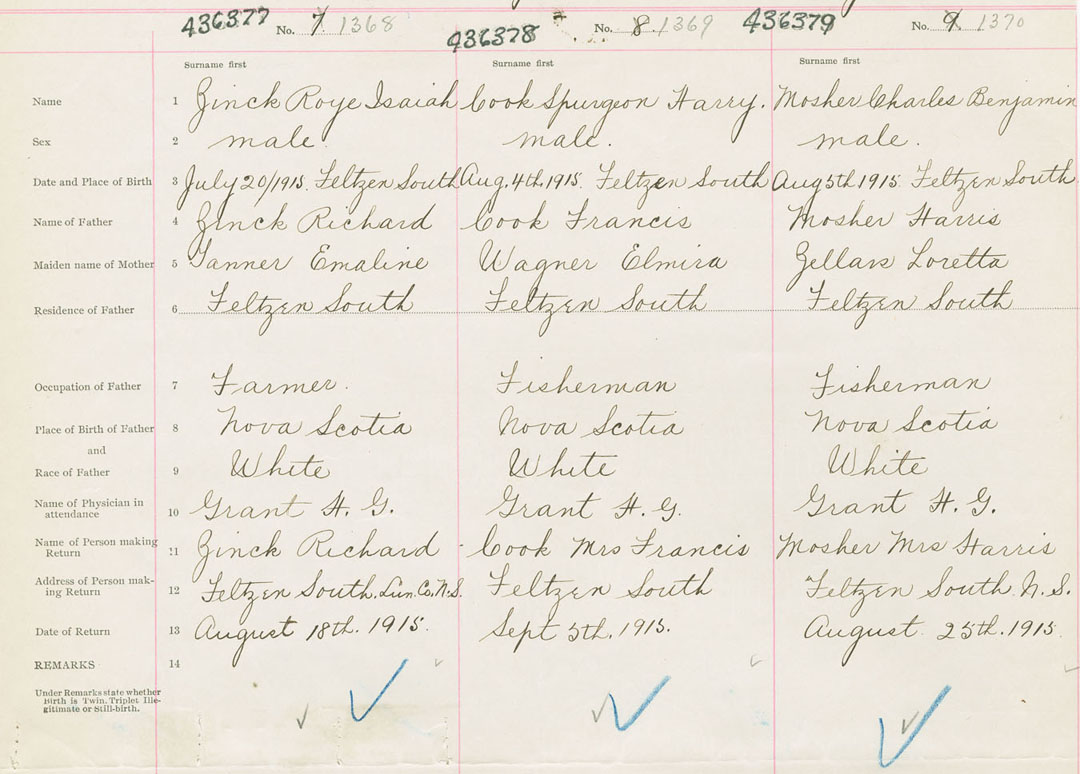 436377 No. 7 1368 436378 No. 8 1369 436379 No. 9 1370
Surname first Surname first Surname first
Name 1 Zinck Roye Isaiah Cook Spurgeon Harry. Mosher Charles Benjamin
Sex 2 male. male. male.
Date and Place of Birth 3 July 20/1915. Feltzen South Aug. 4th. 1915. Feltzen South Aug 5th 1915. Feltzen South
Name of Father 4 Zinck Richard Cook Francis Mosher Harris
Maiden name of Mother 5 Tanner Emaline Wagner Elmira Zellars Loretta
Residence of Father 6 Feltzen South Feltzen South Feltzen South
Occupation of Father 7 Farmer. Fisherman Fisherman
Place of Birth of Father 8 Nova Scotia Nova Scotia Nova Scotia
and
Race of Father 9 White White White
Name of Physician in
attendance 10 Grant H. G. Grant H. G. Grant H. G.
Name of Person making
Return 11 Zinck Richard Cook Mrs Francis Mosher Mrs Harris
Address of Person mak-
ing Return 12 Feltzen South. Lun. Co. N.S. Feltzen South Feltzen South N.S.
Date of Return 13 August 18th. 1915. Sept 5th. 1915. August 25th. 1915.
REMARKS 14
Under Remarks state whether
Birth is Twin, Triplet Ille-
gitimate or Still-birth.